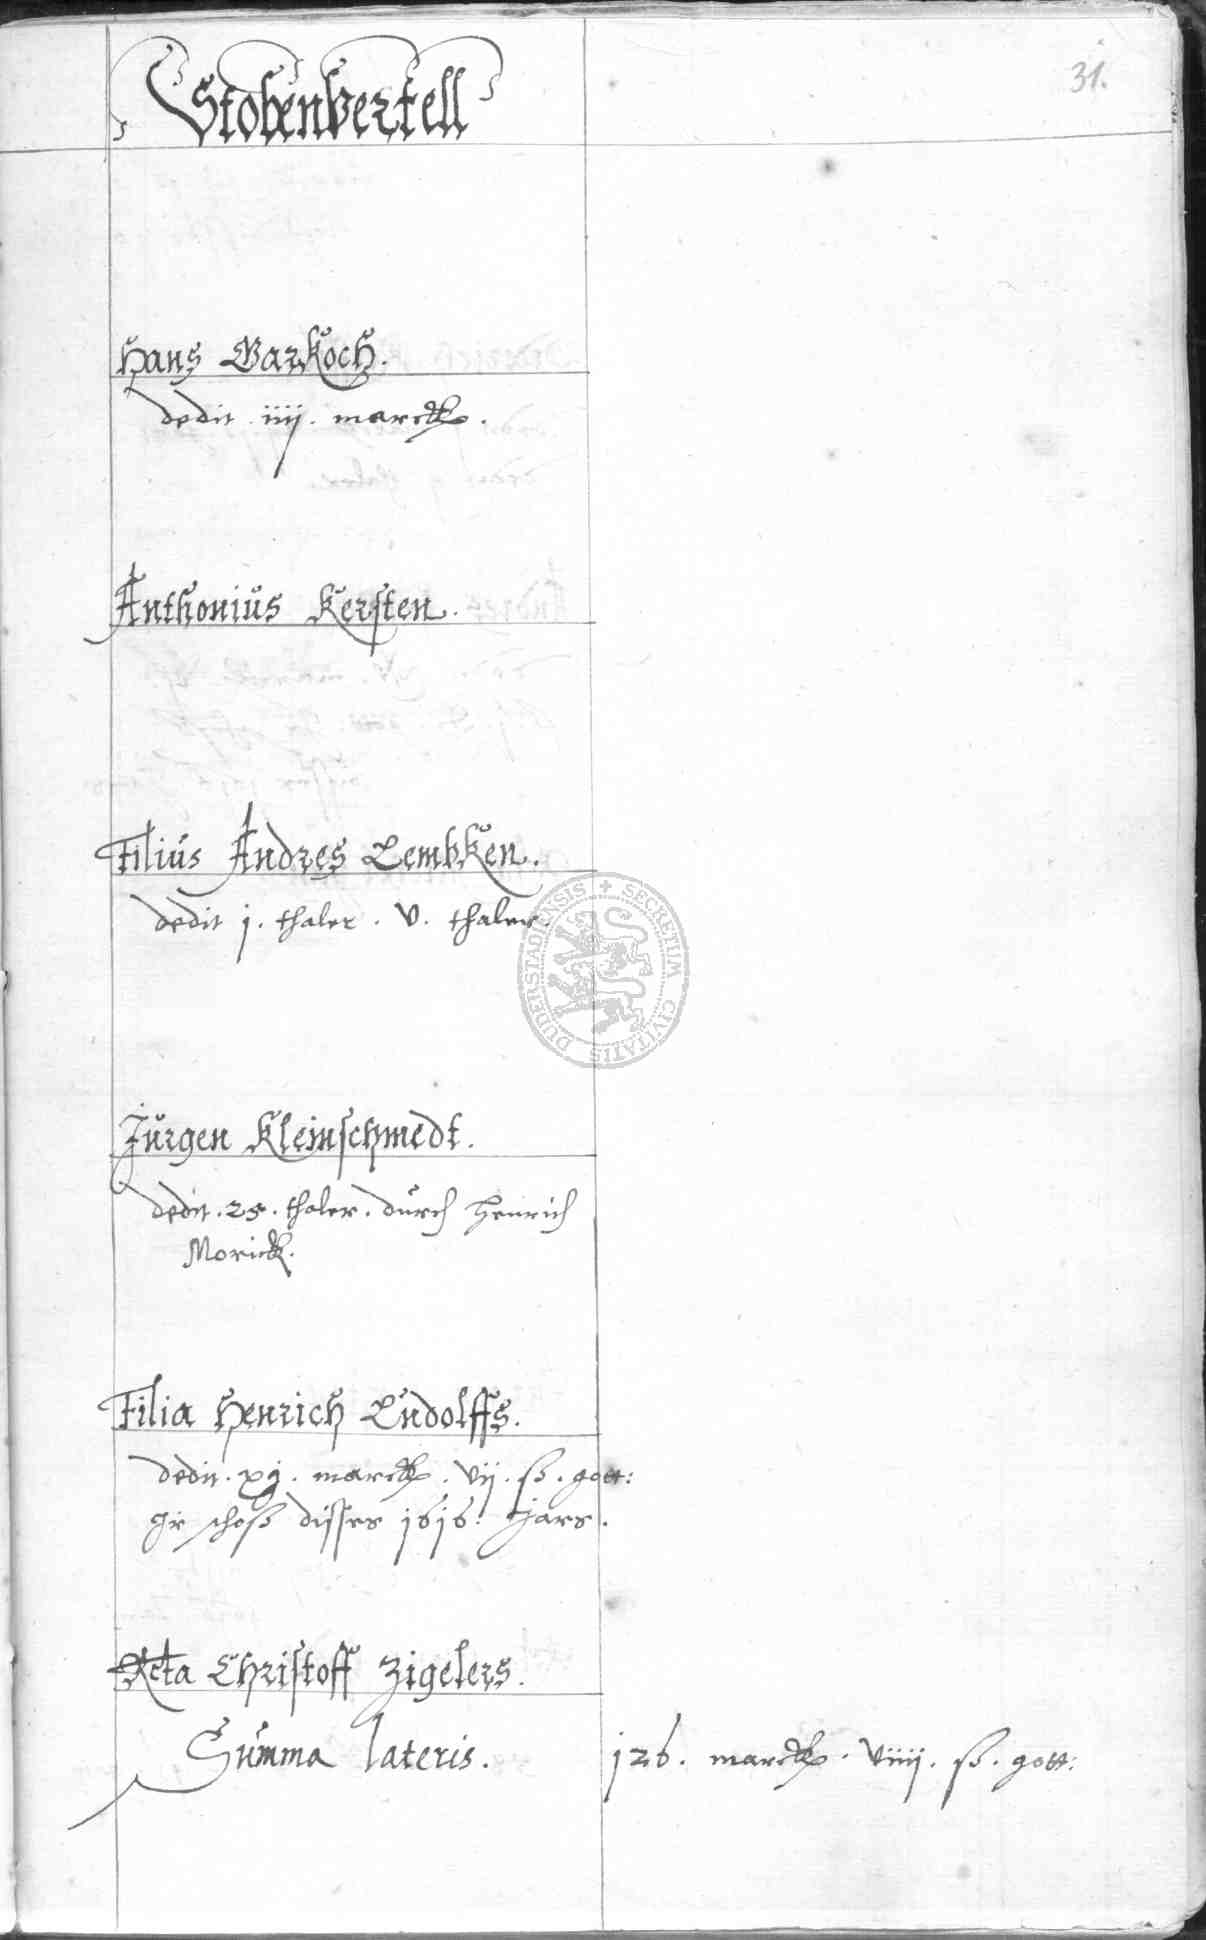 31.
Stobenvertell
Hans Barkoch.
dedit . iiij . marck .
Anthonius Kersten .
Filius Andres Lembken .
dedit j . thaler . v . thaler .
Jürgen Kleinschmedt .
dedit . 25 . thaler . durch Henrich
Morick .
Filia Henrich Ludolffs .
dedit . xj . marck . vij . ß . gott:
schoß disses 1616 . Jars .
Rcta Christoff Zigelers .
Summa lateris . 126 . marck . viiij . ß . gott:
SECRETUM CIVITATIS DUDERSTADIENSIS